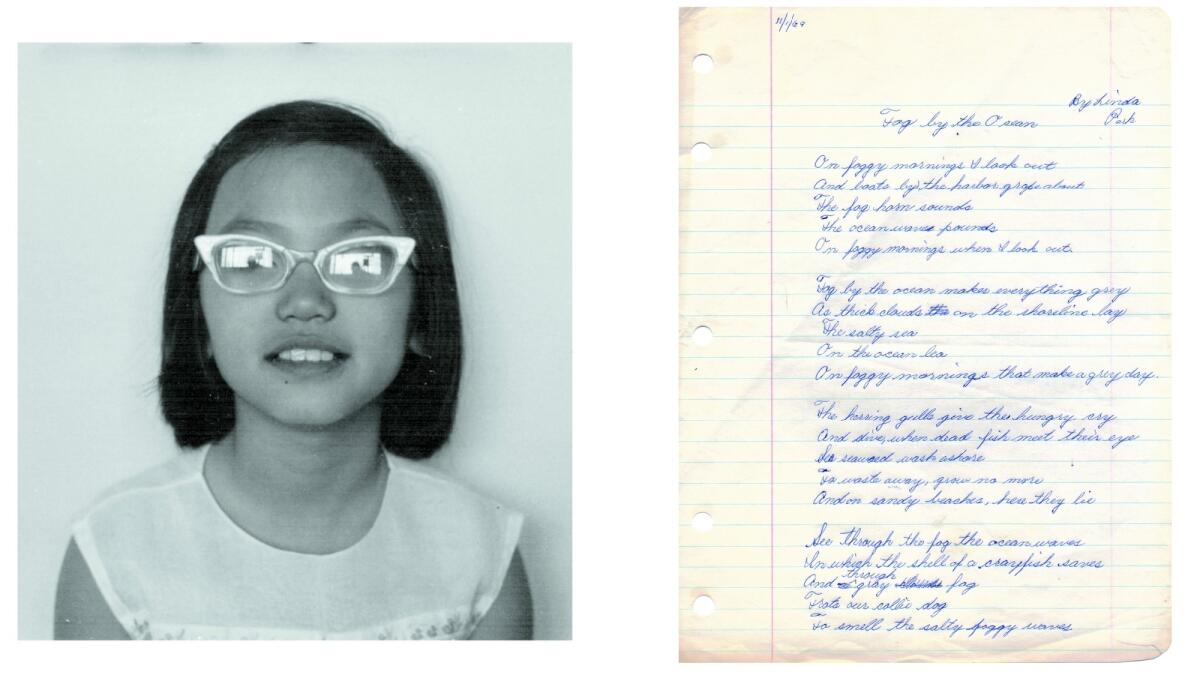 11/1/69
By Linda
Park
Fog by the Osean
On foggy mornings I look out
And boats by the harbor grope about
The fog horn sounds
The ocean waves pounds
On foggy mornings when I look out.
Fog by the ocean makes everything grey
As thick clouds on the shoreline lay
The salty sea
On the ocean lea
On foggy mornings that make a grey day.
The herring gulls give their hungry cry
And dive, when dead fish meet their eye
seaweed wash ashore
To waste away, grow no more
And on sandy beaches, here they lie
See through the fog the ocean waves
In which the shell of a crayfish saves
And through gray fog
Trots our collie dog
To smell the salty foggy waves